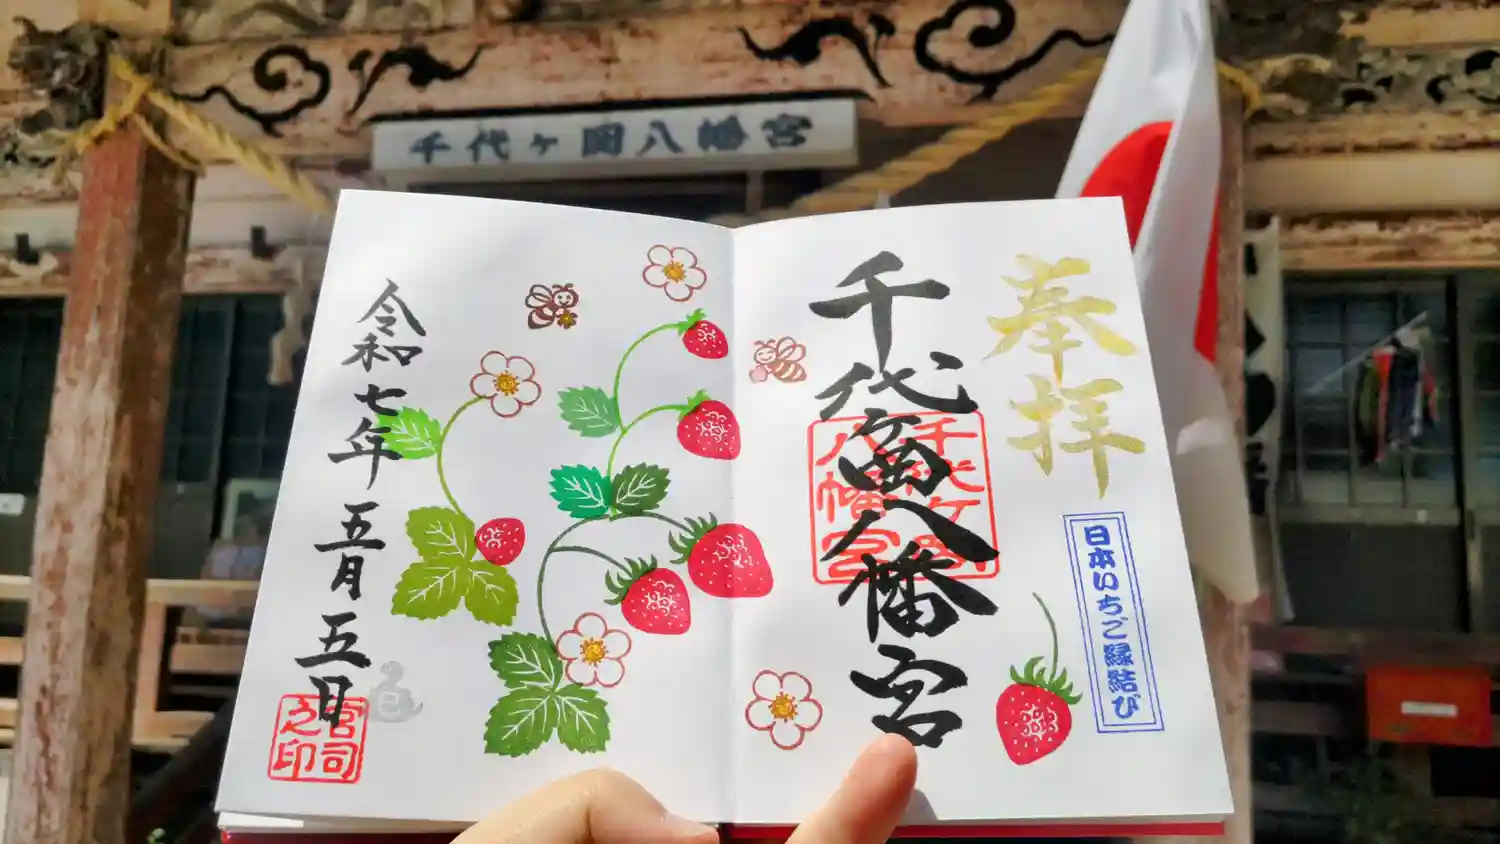 千代ヶ岡八幡宮
奉拝
日本いちご縁結び
千代ヶ岡八幡宮
千代ヶ岡
八幡宮
令和七年五月五日
宮司
之印